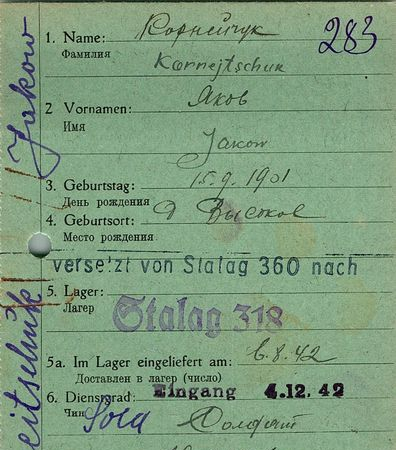 283
1. Name: Корнейчук
Фамилия
Kornejtschuk
2 Vornamen: Яков
Имя
Jakow
3. Geburtstag: 15.9.1901
День рождения
4. Geburtsort: д Высокое
Место рождения
versetzt von Stalag 360 nach
5. Lager:
Лагер
Stalag 318
5a. Im Lager eingeliefert am: 6.8.42
Доставлен в лагер (число)
Eingang 4.12.42
6. Dienstgrad:
Чин
Sold Солдат
Jakow